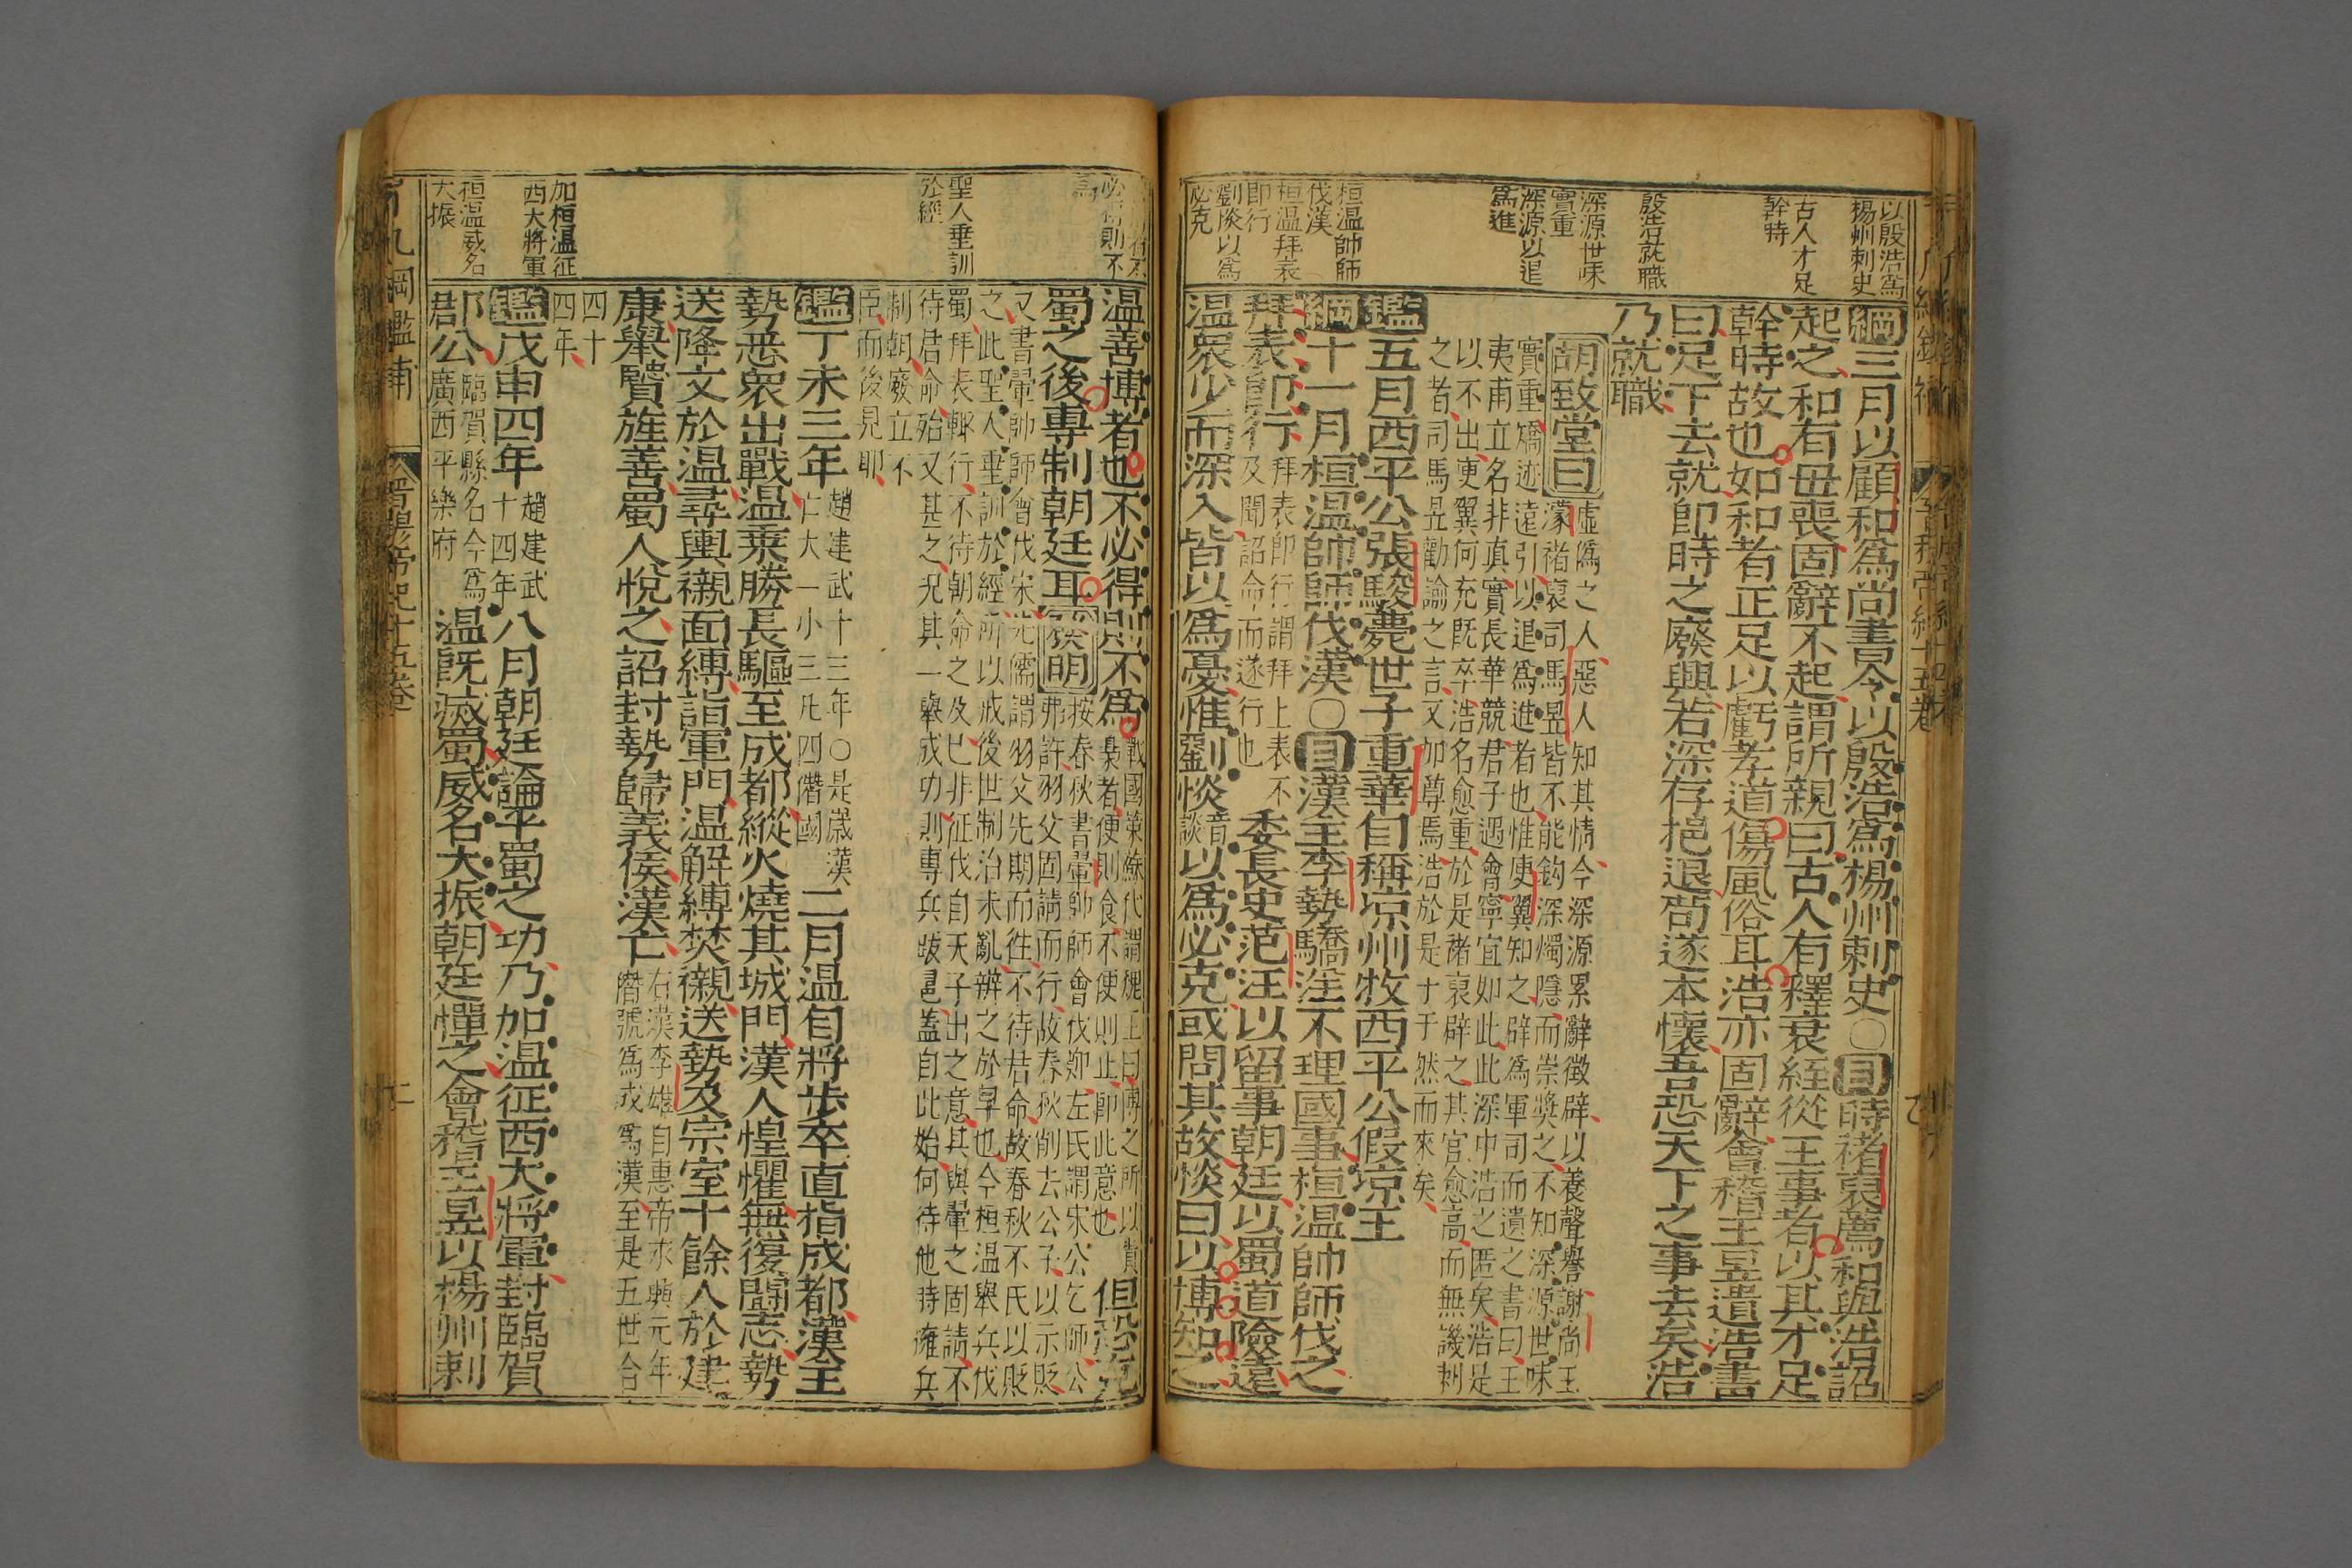 以殷浩爲
楊州刺史
古人才足
幹時
殷浩就職
深源世味
實重
深源以退
爲進
桓温帥師
伐漢
桓温拜表
即行
劉惔以爲
必克
綱三月以顧和爲尚書令以殷浩爲楊州刺史〇目時褚裒薦和與浩詔
起之和有毋喪固辭不起謂所親曰古人有釋衰絰從王事者以其才足
幹時故也如和者正足以虧孝道傷風俗耳浩亦固辭會稽王昱遺浩書
曰足下去就即時之廢興若深存挹退茍遂本懷吾恐天下之事去矣浩
乃就職
胡致堂曰虛僞之人惡人知其情今深源累辭徵辟以養聲譽謝尚王
濛褚裒司馬昱皆不能鈎深燭隱而崇奬之不知深源世味
實重矯迹遠引以退爲進者也惟庾翼知之辟爲軍司而遺之書曰王
夷甫立名非真實長華競君子遇會寧宜如此此深中浩之匿矣浩是
以不出庾翼何充既卒浩名愈重於是褚裒辟之其官愈高而無譏刺
之者司馬昱勸諭之言又加尊焉浩於是于于然而來矣
鑑五月西平公張駿薨世子重華自稱凉州牧西平公假凉王
綱十一月桓温帥師伐漢〇目漢主李勢驕淫不理國事桓温帥師伐之
拜表即行拜表即行謂拜上表不
及聞詔命而遂行也委長史范汪以留事朝廷以蜀道險遠
温衆少而深入皆以爲憂惟劉惔音談以爲必克或問其故惔曰以博知之
必得則不
爲
聖人垂訓
於經
加桓温征
西大將軍
桓温威名
大振
温善博者也不必得則不爲戰國策蘇代謂魏王曰博之所以貴
梟者便則食不便則止即此意也但恐克
蜀之後專制朝廷耳發明按春秋書翬帥師會伐鄭左氏謂宋公乞師公
弗許羽父固請而行故春秋削去公子以示貶
又書翬帥師會伐宋先儒謂羽父先期而徃不待君命故春秋不氏以貶
之此聖人垂訓於經所以戒後世制治未亂辨之於早也今桓温舉兵伐
蜀拜表輒行不待朝命之及巳非征伐自天子出之意其與翬之固請不
待君命殆又甚之况其一舉成功則專兵跋扈蓋自此始何待他時擁兵
制朝廢立不
臣而後見耶
鑑丁未三年趙建武十三年〇是歲漢
亡大一小三凡四僭國二月温自將步卒直指成都漢主
勢悉衆出戰温乗勝長驅至成都縱火燒其城門漢人惶懼無復鬬志勢
送降文於温尋輿櫬面縛詣軍門温解縛焚櫬送勢及宗室十餘人於建
康舉賢旌善蜀人悅之詔封勢歸義侯漢亡右漢李雄自惠帝永興元年
僭號爲成爲漢至是五世合
四十
四年
鑑戊申四年趙建武
十四年八月朝廷論平蜀之功乃加温征西大將軍封臨賀
郡公臨賀縣名今爲
廣西平樂府温既滅蜀威名大振朝廷憚之會稽王昱以楊州刺